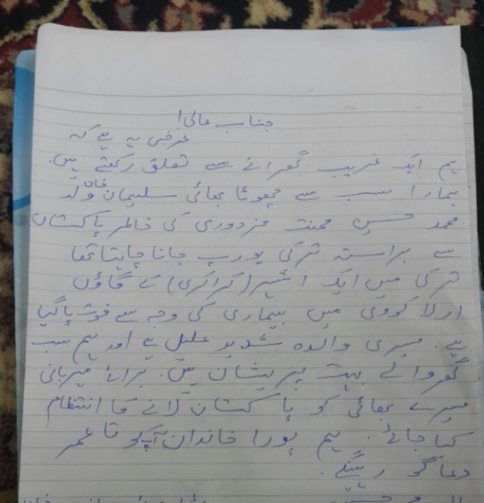 جناب عالی!
عرض یہ ہے کہ
ہم ایک غریب گھرانے سے تعلق رکھتے ہیں.
ہمارا سب سے چھوٹا بھائی سلیمان خان ولد
محمد حسین محنت مزدوری کی خاطر پاکستان
سے براستہ ترکی یورپ جانا چاہتا تھا
ترکی میں ایک شہر (کراکری) کے گاؤں
ارلاکووی میں بیماری کی وجہ سے فوت پا گیا
ہے. میری والدہ شدید علیل ہے اور ہم سب
گھر والے بہت پریشان ہیں. برائے مہربانی
میرے بھائی کو پاکستان لانے کا انتظام
کیا جائے. ہم پورا خاندان آپکو تا عمر
دعا گو رہینگے.